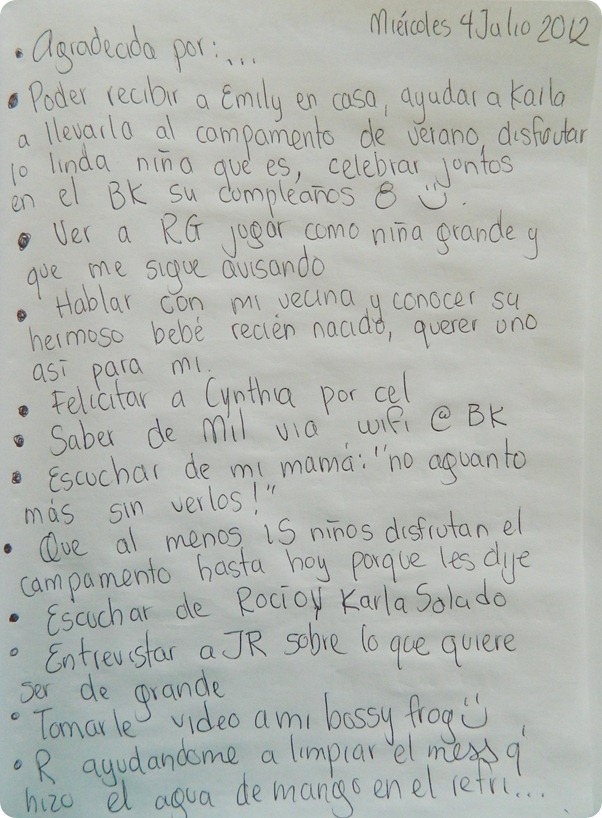 Miércoles 4 Julio 2012
• Agradecida por:...
• Poder recibir a Emily en casa, ayudar a Karla
a llevarla al campamento de verano, disfrutar
lo linda niña que es, celebrar juntos
en el BK su cumpleaños 8 :).
• Ver a RG jugar como niña grande y
que me sigue avisando
• Hablar con mi vecina y conocer su
hermoso bebé recién nacido, querer uno
así para mi.
• Felicitar a Cynthia por cel
• Saber de Mil via wifi @ BK
• Escuchar de mi mamá: "no aguanto
más sin verlos!"
• Que al menos 15 niños disfrutan el
campamento hasta hoy porque les dije
• Escuchar de Rocío y Karla Salado
• Entrevistar a JR sobre lo que quiere
ser de grande
• Tomarle video a mi bossy frog :)
• R ayudandome a limpiar el mess q'
hizo el agua de mango en el refri...